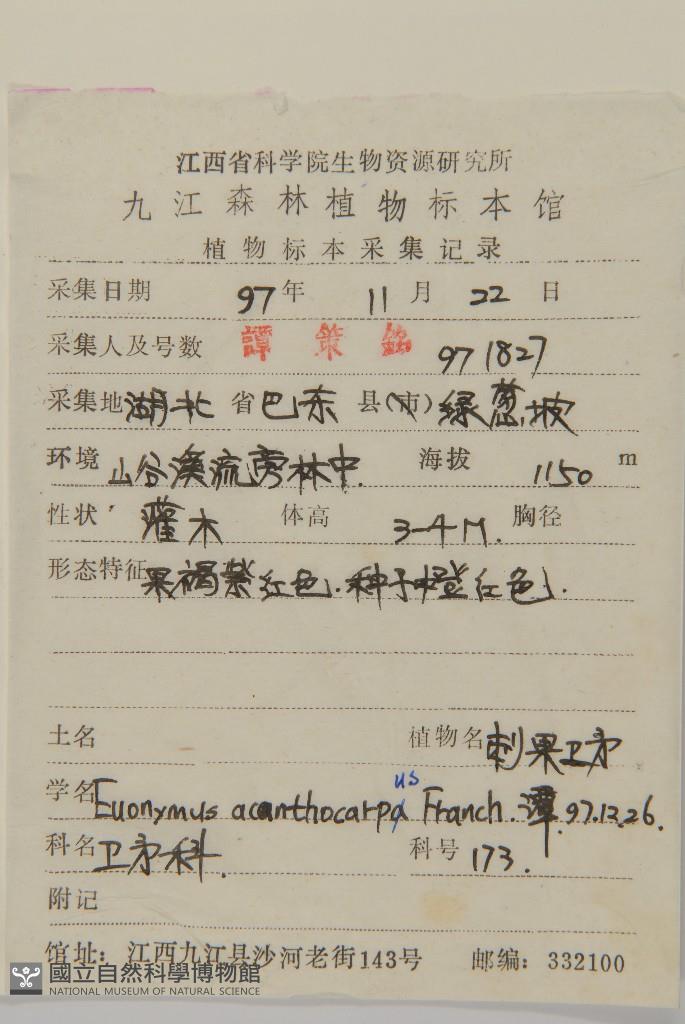 江西省科学院生物资源研究所
九江森林植物标本馆
植物标本采集记录
采集日期 97 年 11 月 22 日
采集人及号数 譚策銘 971827
采集地 湖北 省 巴东 县(市) 绿葱坡
环境 山谷溪流旁林中. 海拔 1150 m
性状 灌木 体高 3-4M. 胸径
形态特征 果褐紫红色. 种子橙红色.
土名 植物名 刺果卫矛
学名 Euonymus acanthocarpus Franch. 潭 97.12.26.
科名 卫矛科. 科号 173.
附记
馆址: 江西九江县沙河老街143号 邮编: 332100
國立自然科學博物館
NATIONAL MUSEUM OF NATURAL SCIENCE